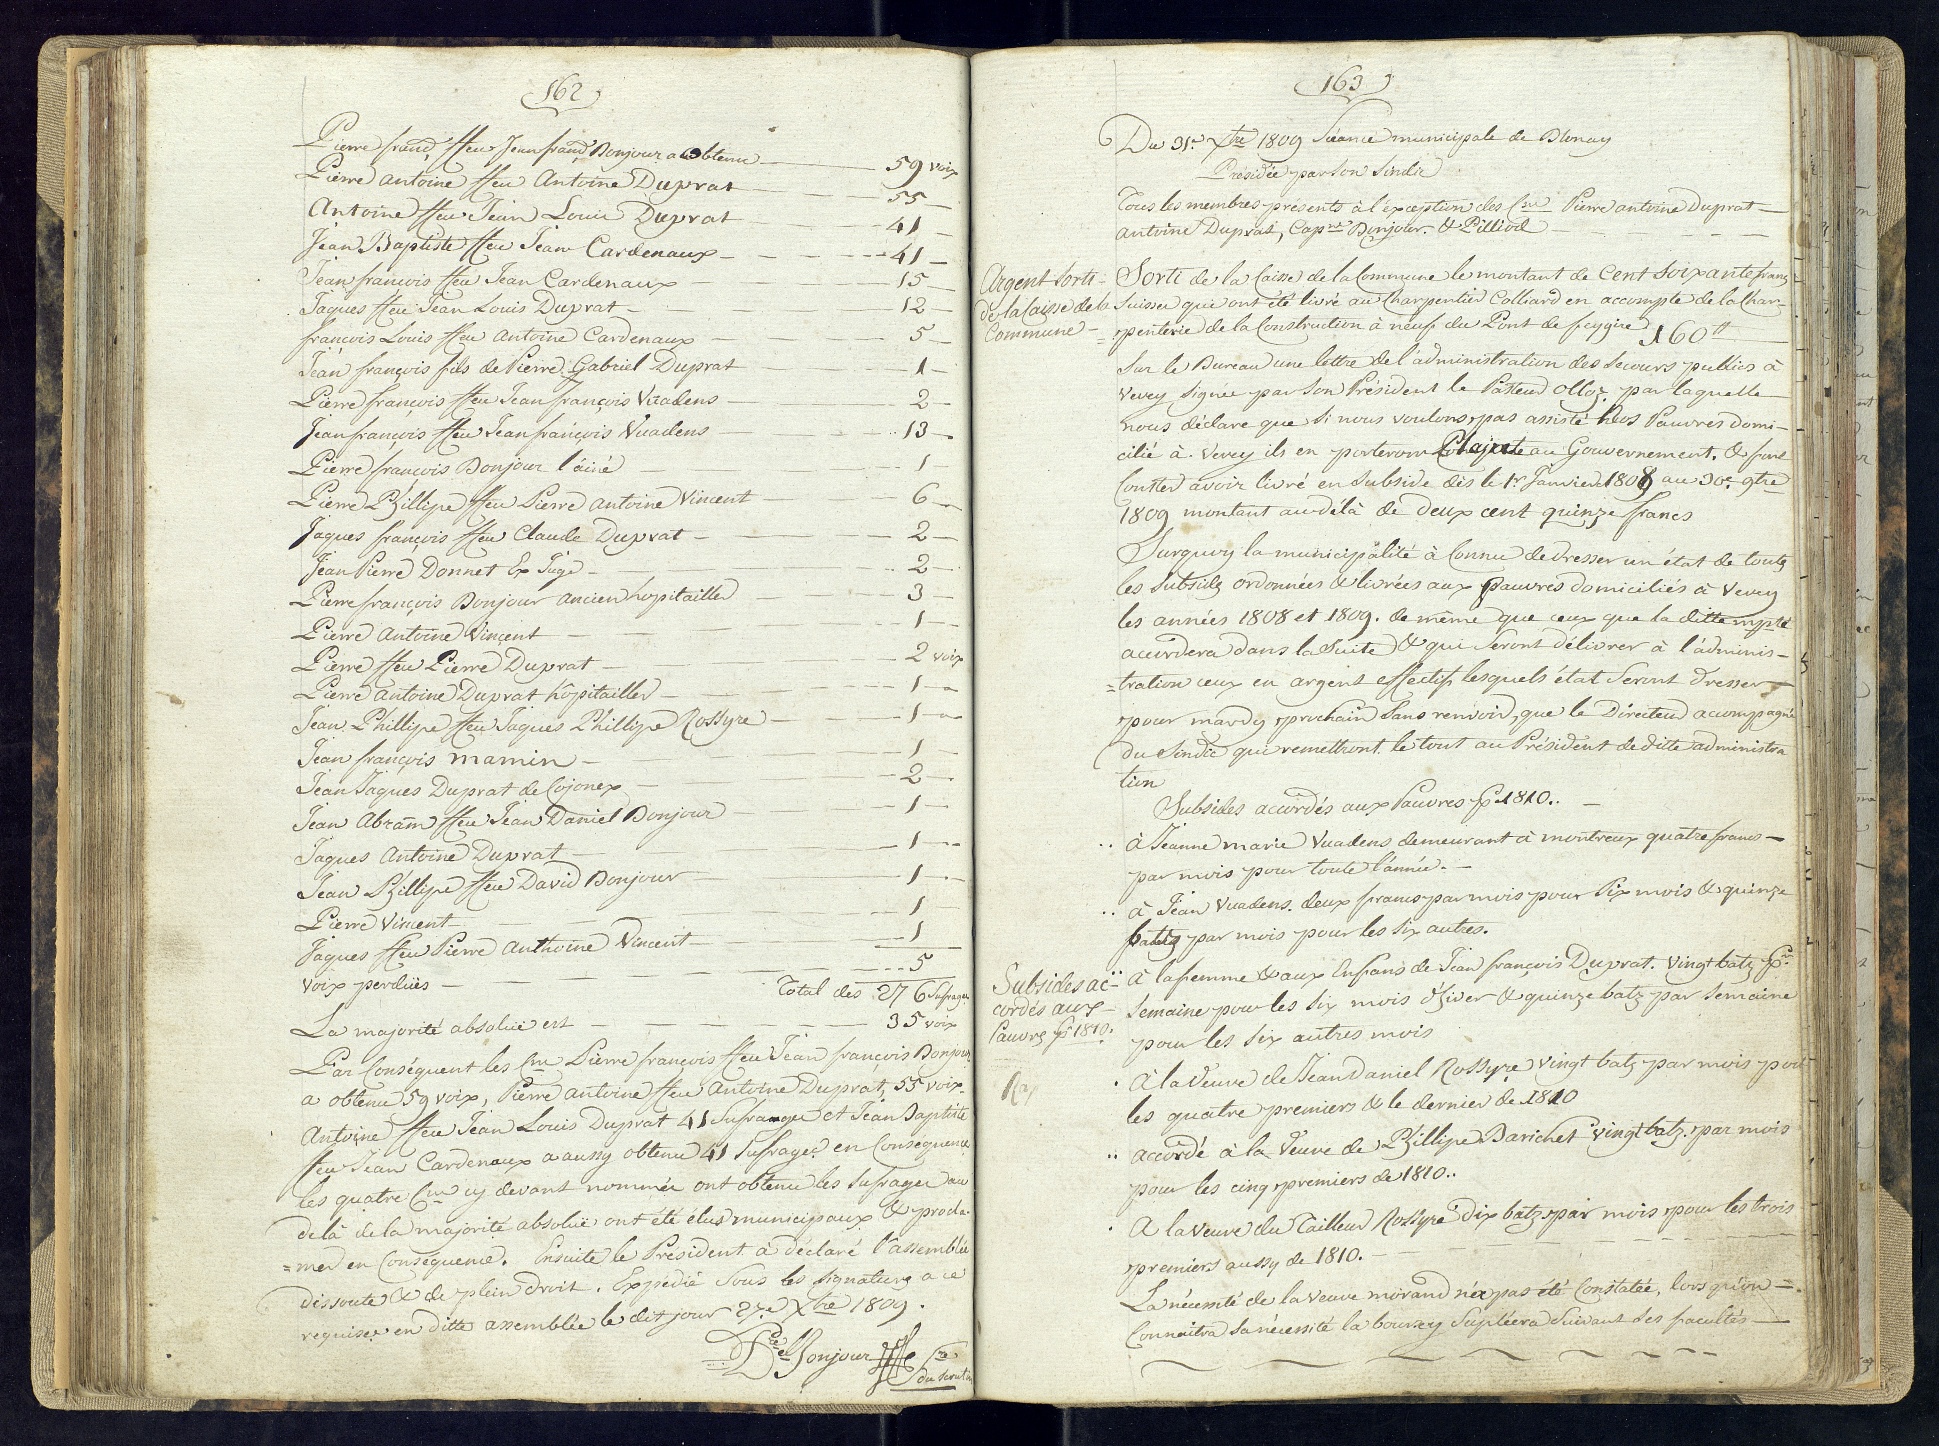 162
Pierre franç ffeu Jean franç Bonjour a obtenu 59 voix
Pierre antoine ffeu Antoine Duprat 55
Antoine ffeu Jean Louis Duprat 41
Jean Baptiste ffeu Jean Cardenaux 41
Jean françois ffeu Jean Cardenaux 15
Jaques ffeu Jean Louis Duprat 12
françois Louis ffeu Antoine Cardenaux 5
Jean françois fils de Pierre Gabriel Duprat 1
Pierre françois ffeu Jean françois Vuadens 2
Jean françois ffeu Jean françois Vuadens 13
Pierre françois Bonjour l'ainé 1
Pierre Phillipe ffeu Pierre antoine Vincent 6
Jaques françois ffeu Claude Duprat 2
Jean Pierre Donnet Ex Juge 2
Pierre françois Bonjour ancien hopitailler 3
Pierre Antoine Vincent 1
Pierre ffeu Pierre Duprat 2 voix
Pierre Antoine Duprat hôpitailler 1
Jean Phillipe ffeu Jaques Phillipe Rossyre 1
Jean françois mamin 1
Jean Jaques Duprat de Cojonex 2
Jean Abram ffeu Jean Daniel Bonjour 1
Jaques Antoine Duprat 1
Jean Phillipe ffeu David Bonjour 1
Pierre Vincent 1
Jaques ffeu Pierre Anthoine Vincent 1
voix perdües 5
Total des 276 Sufrages
La majorité absolue est 35 voix
Par Conséquent les Cns Pierre françois ffeu Jean françois Bonjour
a obtenu 59 voix, Pierre antoine ffeu Antoine Duprat, 55 voix
Antoine ffeu Jean Louis Duprat 41 Sufrages et Jean Baptiste
ffeu Jean Cardenaux a aussy obtenu 41 Sufrages en Conséquence
les quatre Cns cy devant nommés ont obtenu les Sufrages au
delà de la majorité absolue ont été élus municipaux & procla-
=mer en Conséquence. Ensuite le Président à déclaré l'assemblée
dissoute & de plein droit. Expédié Sous les Signatures a ce
requises en ditte assemblée le dit jour 27e Xbre 1809.
Bonjour
du scrutin
163
Du 31e Xbre 1809 Séance municipale de Blonay
Présidée par Son Sindic
Tous les membres présents à l'exception des Cns Pierre antoine Duprat
antoine Duprat, Capne Bonjour & Pilliod
Argent Sorti
de la Caisse de la
Commune
Sorti de la Caisse de la Commune le montant de Cent Soixante francs
Suisses qui ont été livré au Charpentier Colliard en accompte de la Char-
=penterie de la Construction à neuf du Pont de feygire 160 ff
Sur le Bureau une lettre de l'administration des Secours publics à
Vevey Signée par Son Président le Pasteur Olloz, par laquelle
nous déclare que Si nous voulons pas assisté Nos Pauvres domi-
cilié à Vevey ils en porteront Plainte au Gouvernement. & font
Conster avoir livré en Subside dès le 1r Janvier 1808 au 30e 9bre
1809 montant au delà de Deux cent quinze francs
Surquoy la municipalité à Connu de dresser un état de touts
les Subsides ordonnées & livrées aux pauvres domiciliés à Vevey
les années 1808 et 1809. de même que ceux que la ditte mpté
accordera dans la Suite & qui Seront délivrer à l'adminis-
=tration ceux en argent effectif lesquels état Seront dresser
pour mardy prochain Sans renvoi, que le Directeur accompagné
du Sindic qui remettront le tout au Président de ditte administra
tion
Subsides accordés aux Pauvres pr 1810..
à Jeanne marie Vuadens demeurant à montreux quatre francs
par mois pour toute l'année.
à Jean Vuadens. deux francs par mois pour Six mois & quinze
batz par mois pour les Six autres.
Subsides ac-
cordés aux
Pauvres pr 1810.
à la femme & aux Enfans de Jean françois Duprat. vingt batz pr
Semaine pour les Six mois d'hiver & quinze batz par Semaine
pour les Six autres mois
à la Veuve de Jean Daniel Rossyre vingt batz par mois pour
les quatre premiers & le dernier de 1810
accordé à la Veuve de Phillipe Barichet vingt batz par mois
pour les cinq premiers de 1810..
A la veuve du Tailleur Rossyre dix batz par mois pour les trois
premiers aussy de 1810.
La nécessité de la Veuve morand n'éa pas été Constatée, lors qu'on
Connaitra Sa nécessité la bourse y Supléera Suivant Ses facultés